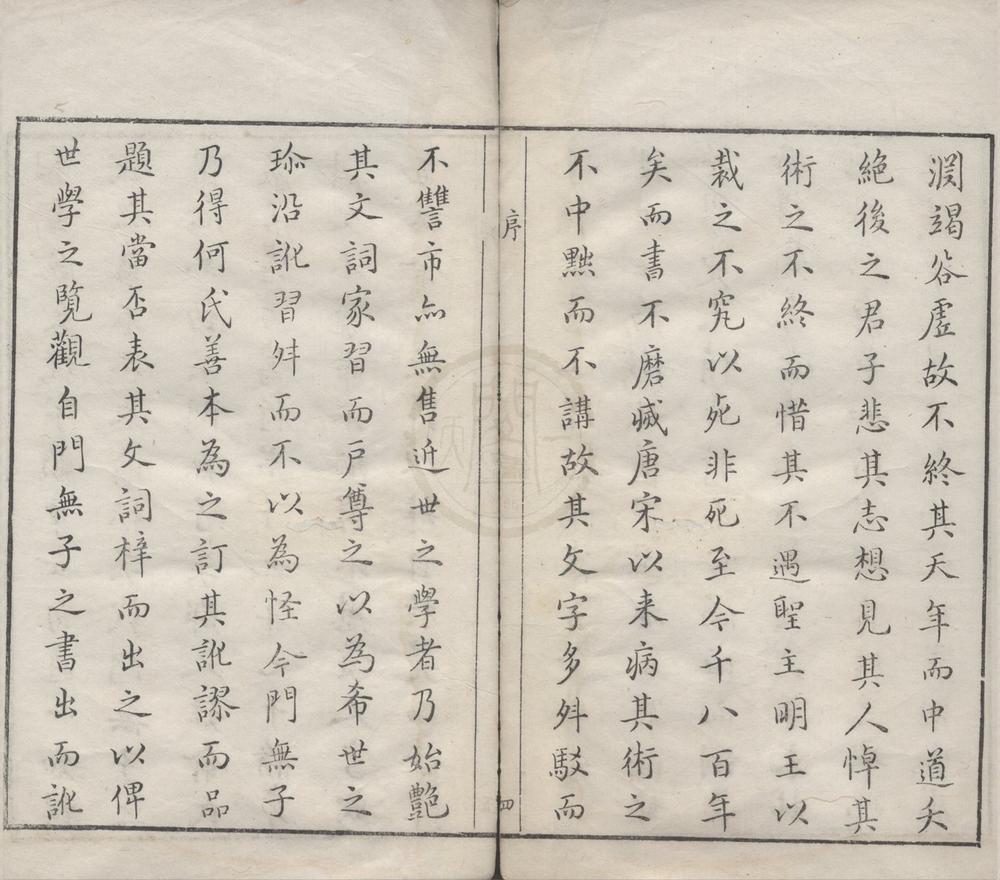 淵竭谷虛故不終其天年而中道夭
絕後之君子悲其志想見其人悼其
術之不終而惜其不遇聖主明王以
裁之不究以死非死至今千八百年
矣而書不磨滅唐宋以来病其術之
不中黜而不講故其文字多舛駁而
序
四
不讐市亦無售近世之學者乃始艷
其文詞家習而戶尊之以為希世之
珍沿訛習舛而不以為怪今門無子
乃得何氏善本為之訂其訛謬而品
題其當否表其文詞梓而出之以俾
世學之覽觀自門無子之書出而訛